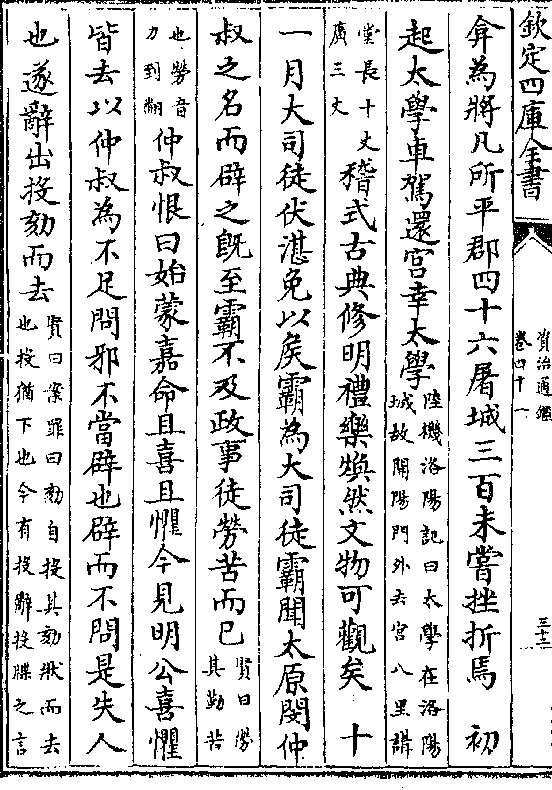 欽定四庫全書
資治通鑑
卷四十一
三十二
弇為將凡所平郡四十六屠城三百未嘗挫折焉　初
起太學車駕還宫幸太學陸機洛陽記曰太學在洛陽
城故開陽門外去宫八里講
堂長十丈
廣三丈稽式古典修明禮樂煥然文物可觀矣　十
一月大司徒伏湛免以矦霸為大司徒霸聞太原閔仲
叔之名而辟之既至霸不及政事徒勞苦而已賢曰勞
其勤苦
也勞音
力到翻仲叔恨曰始蒙嘉命且喜且懼今見明公喜懼
皆去以仲叔為不足問邪不當辟也辟而不問是失人
也遂辭出投劾而去賢曰案罪曰劾自投其劾狀而去
也投猶下也今有投辭投牒之言